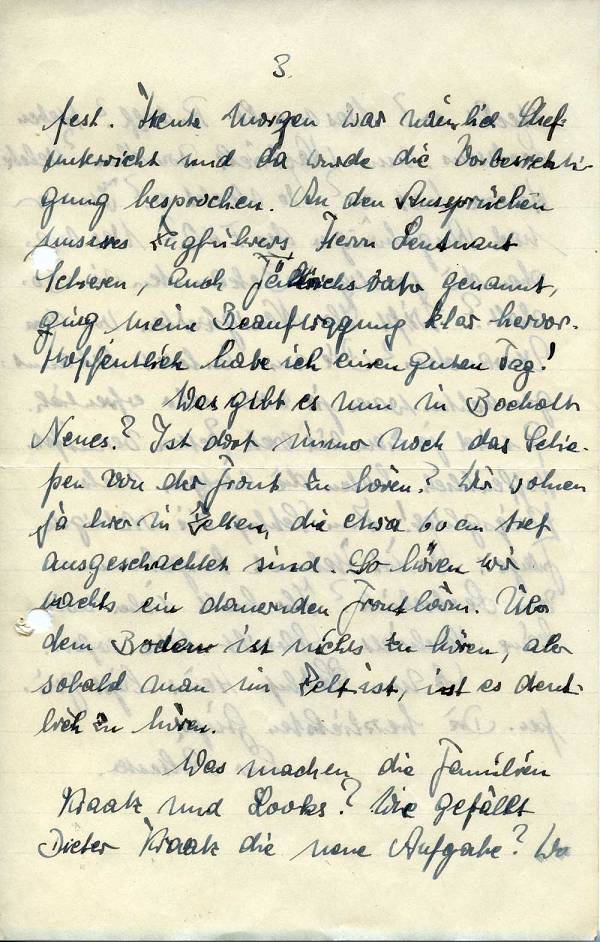 3.
fest. Heute morgen war nämlich Chef-
unterricht und da wurde die Vorbesichti-
gung besprochen. An den Aussprüchen
unseres Zugführers Herrn Leutnant
auch genannt,
ging meine Beauftragung klar hervor.
Hoffentlich habe ich einen guten Tag!
Was gibt es nun in Bocholt
Neues? Ist dort immer noch das Schie-
ßen von der Front zu hören? Wir wohnen
ja hier in Zelten, die etwa 60 cm tief
ausgeschachtet sind. So hören wir
nachts ein dauernden Frontlärm. Über
dem Boden ist nichts zu hören, aber
sobald man im Zelt ist, ist es deut-
lich zu hören.
Was machen die Familien
Kraatz und Looks? Wie gefällt
Dieter Kraatz die neue Aufgabe? Wo